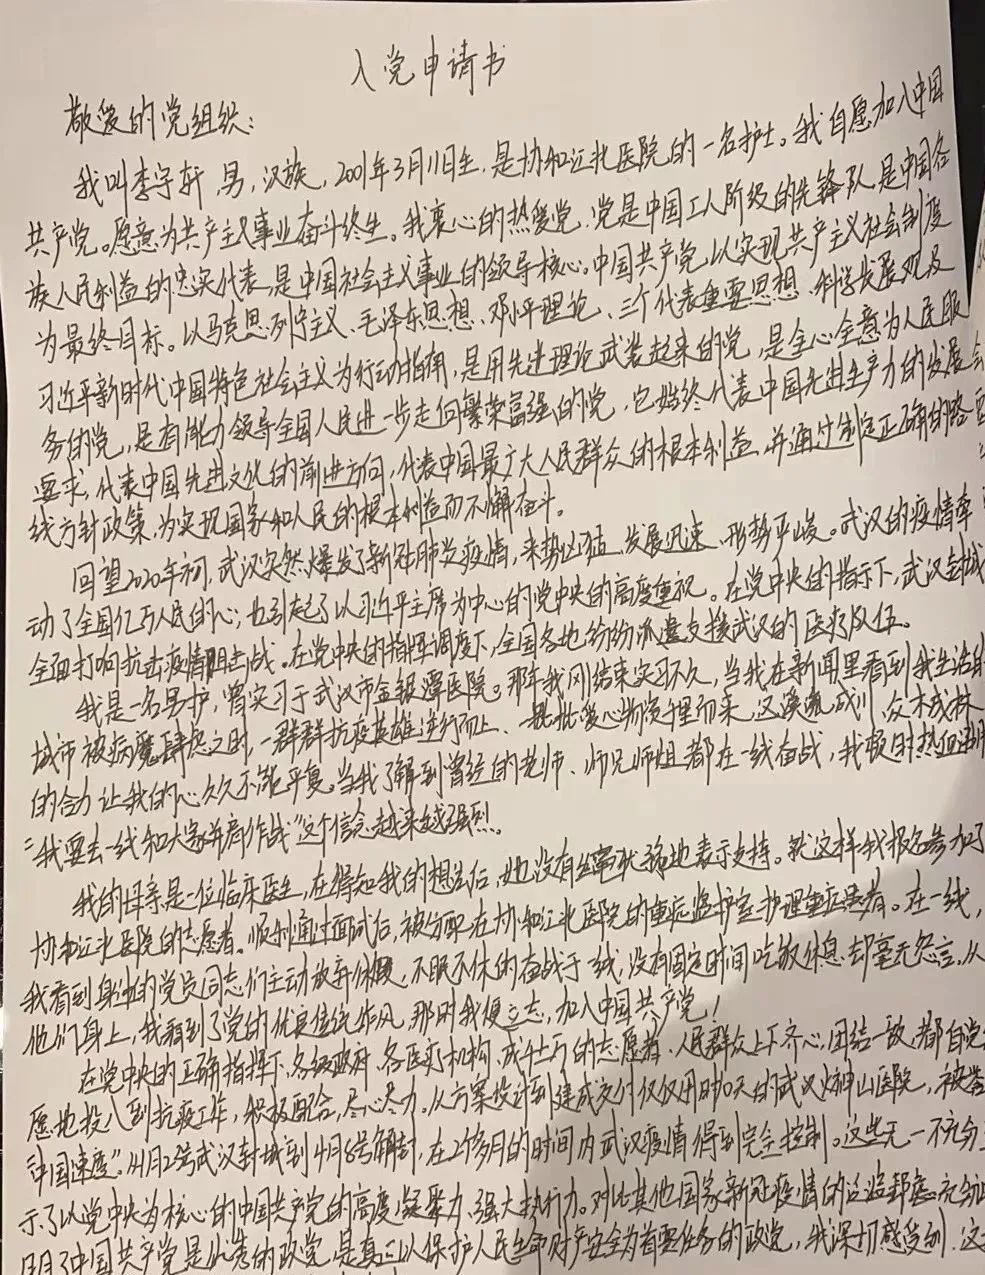 入党申请书
敬爱的党组织:
我叫李宇轩,男,汉族,2001年3月11日生,是协和江北医院的一名护士。我自愿加入中国
共产党。愿意为共产主义事业奋斗终生。我衷心的热爱党,党是中国工人阶级的先锋队,是中国各
族人民利益的忠实代表,是中国社会主义事业的领导核心。中国共产党以实现共产主义社会制度
为最终目标。以马克思列宁主义、毛泽东思想、邓小平理论、三个代表重要思想、科学发展观及
习近平新时代中国特色社会主义为行动指南,是用先进理论武装起来的党,是全心全意为人民服
务的党,是有能力领导全国人民进一步走向繁荣富强的党。它始终代表中国先进生产力的发展
要求,代表中国先进文化的前进方向,代表中国最广大人民群众的根本利益,并通过制定正确的路
线方针政策,为实现国家和人民的根本利益而不懈奋斗。
回望2020年初,武汉突然爆发了新冠肺炎疫情,来势凶猛、发展迅速、形势严峻。武汉的疫情牵
动了全国亿万人民的心,也引起了以习近平主席为中心的党中央的高度重视。在党中央的指示下,武汉全城
全面打响抗击疫情阻击战。在党中央的指挥调度下,全国各地纷纷派遣支援武汉的医疗队伍。
我是一名男护,曾实习于武汉市金银潭医院。那年我刚结束实习不久,当我在新闻里看到我生活的
城市被病魔肆虐之时,一群群抗疫英雄逆行而上、一批批爱心物资千里而来,汉溪流成川,众木成林
的合力让我的心久久不能平复。当我了解到曾经的老师、师兄师姐都在一线奋战,我顿时热血
“我要去一线和大家并肩作战”这个信念越来越强烈。
我的母亲是一位临床医生,在得知我的想法后,她没有丝毫犹豫地表示支持。就这样我报名参加了
协和江北医院的志愿者。顺利通过面试后,被分配在协和江北医院的重症监护室护理重症患者。在一线,
我看到身边的党员同志们主动放弃休假,不眠不休的奋战于一线,没有固定时间吃饭休息,却毫无怨言。从
他们身上,我看到了党的优良传统作风,那时我便立志,加入中国共产党!
在党中央的正确指挥下,各级政府、各医疗机构、成千上万的志愿者、人民群众上下齐心,团结一致,都自觉
愿地投入到抗疫工作,积极配合,尽心尽力。从方案设计到建成交付仅仅用时10天的武汉火神山医院,被誉
“中国速度”。从1月23号武汉封城到4月8号解封,在2个多月的时间内武汉疫情得到完全控制。这些无一不充分
示了以党中央为核心的中国共产党的高度凝聚力、强大执行力。对比其他国家新冠疫情的泛滥
明了中国共产党是优秀的政党,是真正以保护人民生命财产安全为首要任务的政党,我深切感受到,这